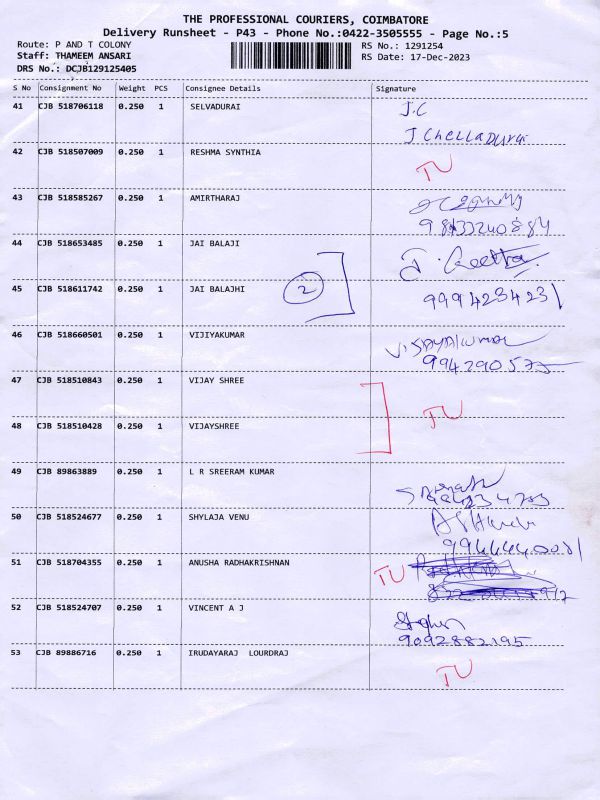 THE PROFESSIONAL COURIERS, COIMBATORE
Delivery Runsheet - P43 - Phone No.:0422-3505555 - Page No.:5
Route: P AND T COLONY
Staff: THAMEEM ANSARI
DRS No.: DCJB129125405
RS No.: 1291254
RS Date: 17-Dec-2023
S No Consignment No Weight PCS Consignee Details Signature
41 CJB 518706118 0.250 1 SELVADURAI J.C
J Chelladurai
42 CJB 518507009 0.250 1 RESHMA SYNTHIA TU
43 CJB 518585267 0.250 1 AMIRTHARAJ
44 CJB 518653485 0.250 1 JAI BALAJI J. Geetha
45 CJB 518611742 0.250 1 JAI BALAJHI 2 9994234231
46 CJB 518660501 0.250 1 VIJIYAKUMAR VIJAYAKUMAR
47 CJB 518510843 0.250 1 VIJAY SHREE
TU
48 CJB 518510428 0.250 1 VIJAYSHREE
49 CJB 89863889 0.250 1 L R SREERAM KUMAR
50 CJB 518524677 0.250 1 SHYLAJA VENU
51 CJB 518704355 0.250 1 ANUSHA RADHAKRISHNAN TU
52 CJB 518524707 0.250 1 VINCENT A J Stephen
9092882195
53 CJB 89886716 0.250 1 IRUDAYARAJ LOURDRAJ TU